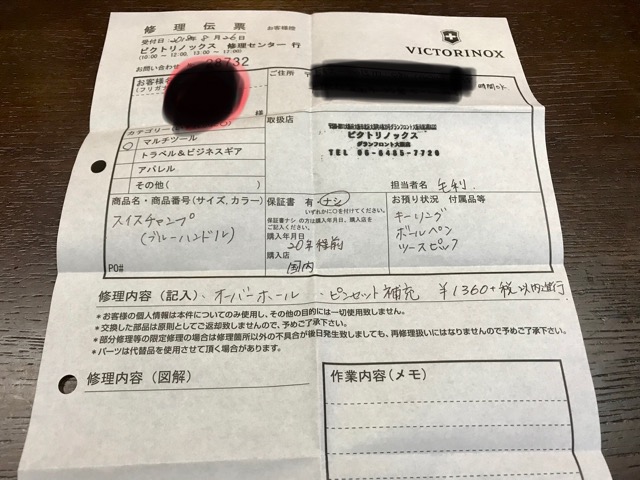 修理伝票
お客様控
受付日:2018年8月26日
ビクトリノックス 修理センター 行
(10:00 ~ 12:00, 13:00 ~ 17:00)
VICTORINOX
お問い合わせ
8732
お客様名
(フリガナ)
様
ご住所 〒
時間OK
カテゴリー
○ マルチツール
トラベル&ビジネスギア
アパレル
その他( )
取扱店
ビクトリノックス
グランフロント大阪店
TEL 06-6485-7720
担当者名 毛利
商品名・商品番号(サイズ,カラー)
スイスチャンプ
(ブルーハンドル)
PO#
保証書 有・ナシ
いずれかに○を付けてください。
保証書ナシ の方は購入年月日、購入店を
ご記入ください。
購入年月日
20年程前
購入店
国内
お預り状況 付属品等
キーリング
ボールペン
ツースピック
修理内容(記入)・オーバーホール ・ピンセット補充 ¥1360+税以内進行
*お客様の個人情報は本件についてのみ使用し、その他の目的には一切使用致しません。
*交換した部品は原則としてご返却致しませんので、予めご了承下さい。
*部分修理等の限定修理の場合は修理箇所以外の不具合が後日発生致しましても、再修理扱いにはなりませんので予めご了承下さい。
*パーツは代替品を使用させて頂く場合があります。
修理内容(図解)
作業内容(メモ)